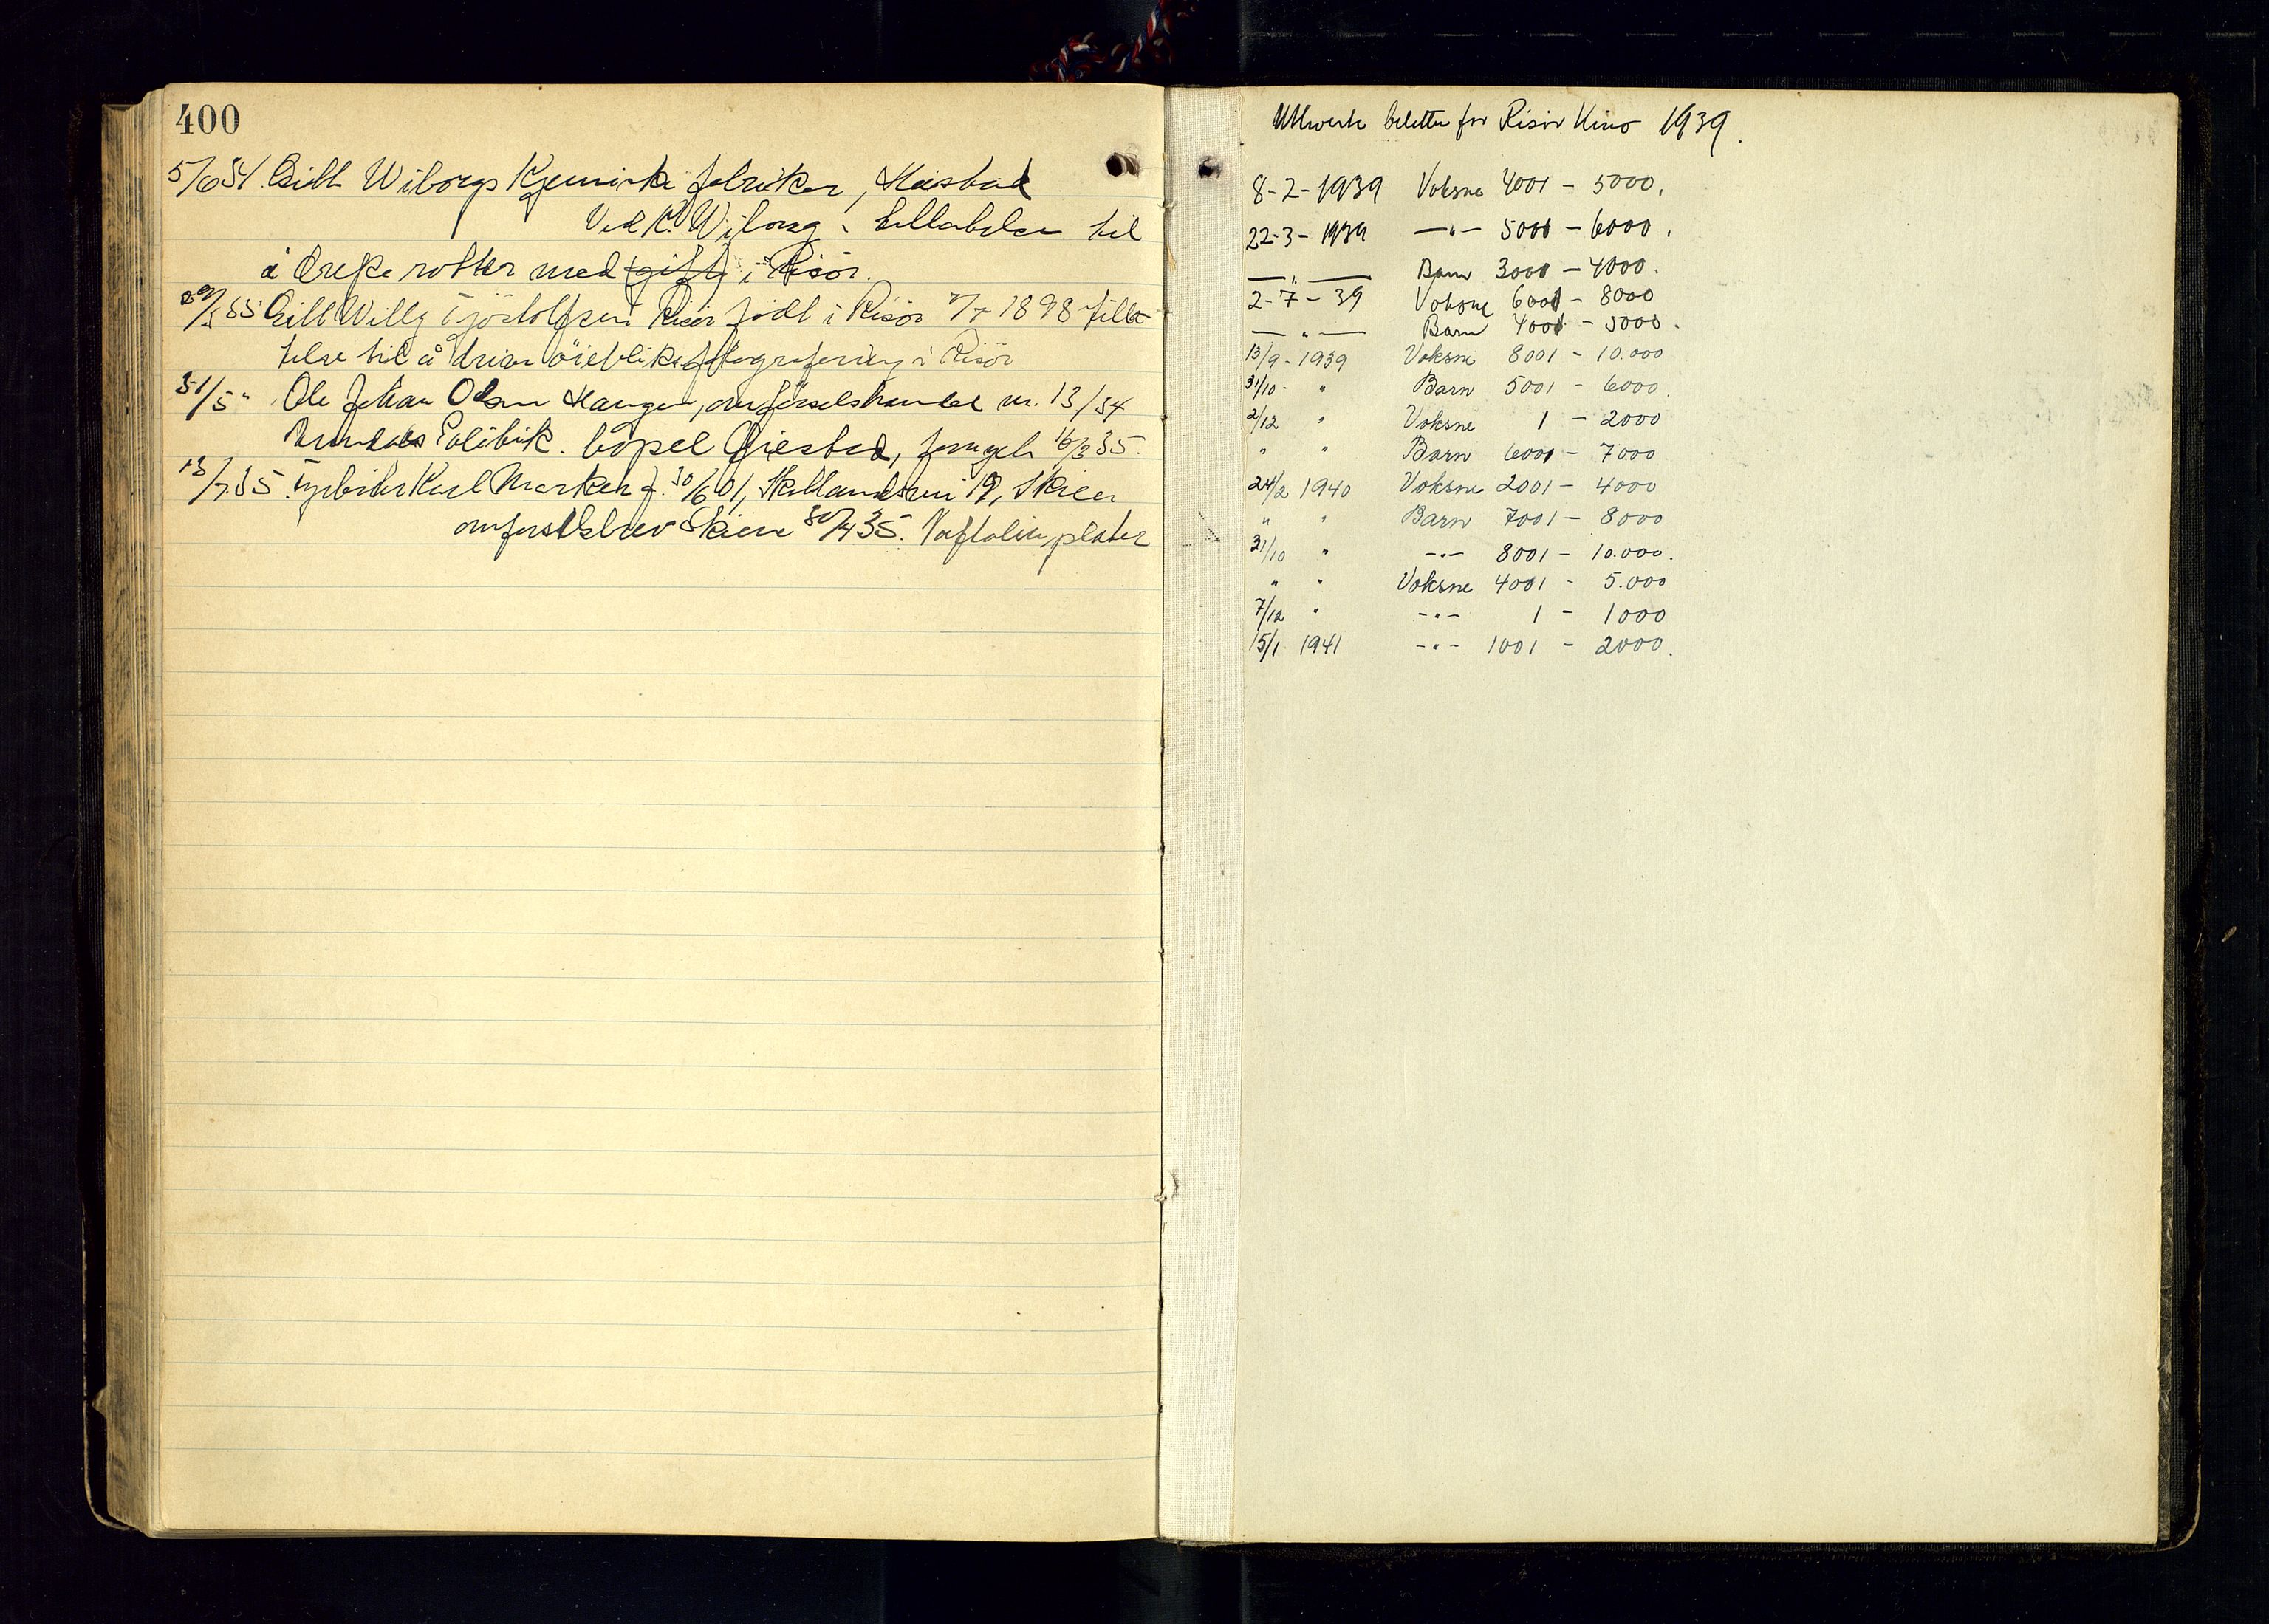 400
5/6 34. Gitt Wiborgs Kjemiske fabriker,
Ved K. Wiborg. tillatelse til
å drepe rotter med (gift) i Risör.
Gitt Willy Tjöstolfsen Risör född i Risör 7/7 1898 tilla-
telse til å drive öieblikksfotografering i Risör
31/5 " Ole Johan Olsen Haugen, omförselshandel nr. 13/34
Arendals Politik. bopel Gjerstad, fornyet 16/3 35.
13/7 35. Karl Marken f. 30/6 01, 19, Skien
omförselsbrev Skien 30/4 35. Naftalin, plater
Utleverte billetter for Risör Kino 1939.
8-2-1939 Voksne 4001 - 5000.
22-3-1939 —"— 5001 - 6000.
—"— Barn 3001 - 4000.
2-7-39 Voksne 6001 - 8000
—"— Barn 4001 - 5000.
13/9-1939 Voksne 8001 - 10.000
31/10- " Barn 5001 - 6000.
2/12 " Voksne 1 - 2000
" " Barn 6001 - 7000
24/2 1940 Voksne 2001 - 4000
" " Barn 7001 - 8000
31/10 " -"- 8001 - 10.000.
" " Voksne 4001 - 5.000
7/12 " -"- 1 - 1000
15/1 1941 -"- 1001 - 2000.